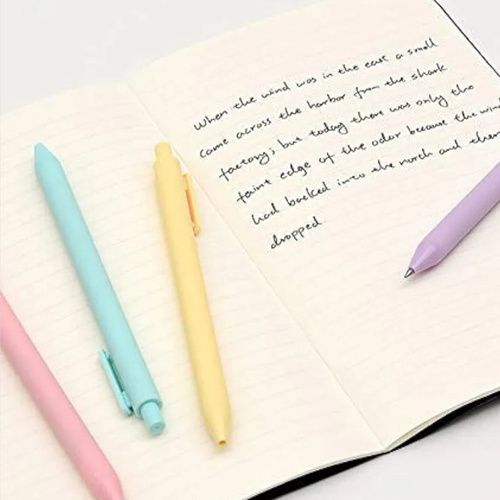 When the wind was in the east a small
came across the harbor from the shark
factory; but today there was only the
faint edge of the odor because the wind
had backed into the north and then
dropped